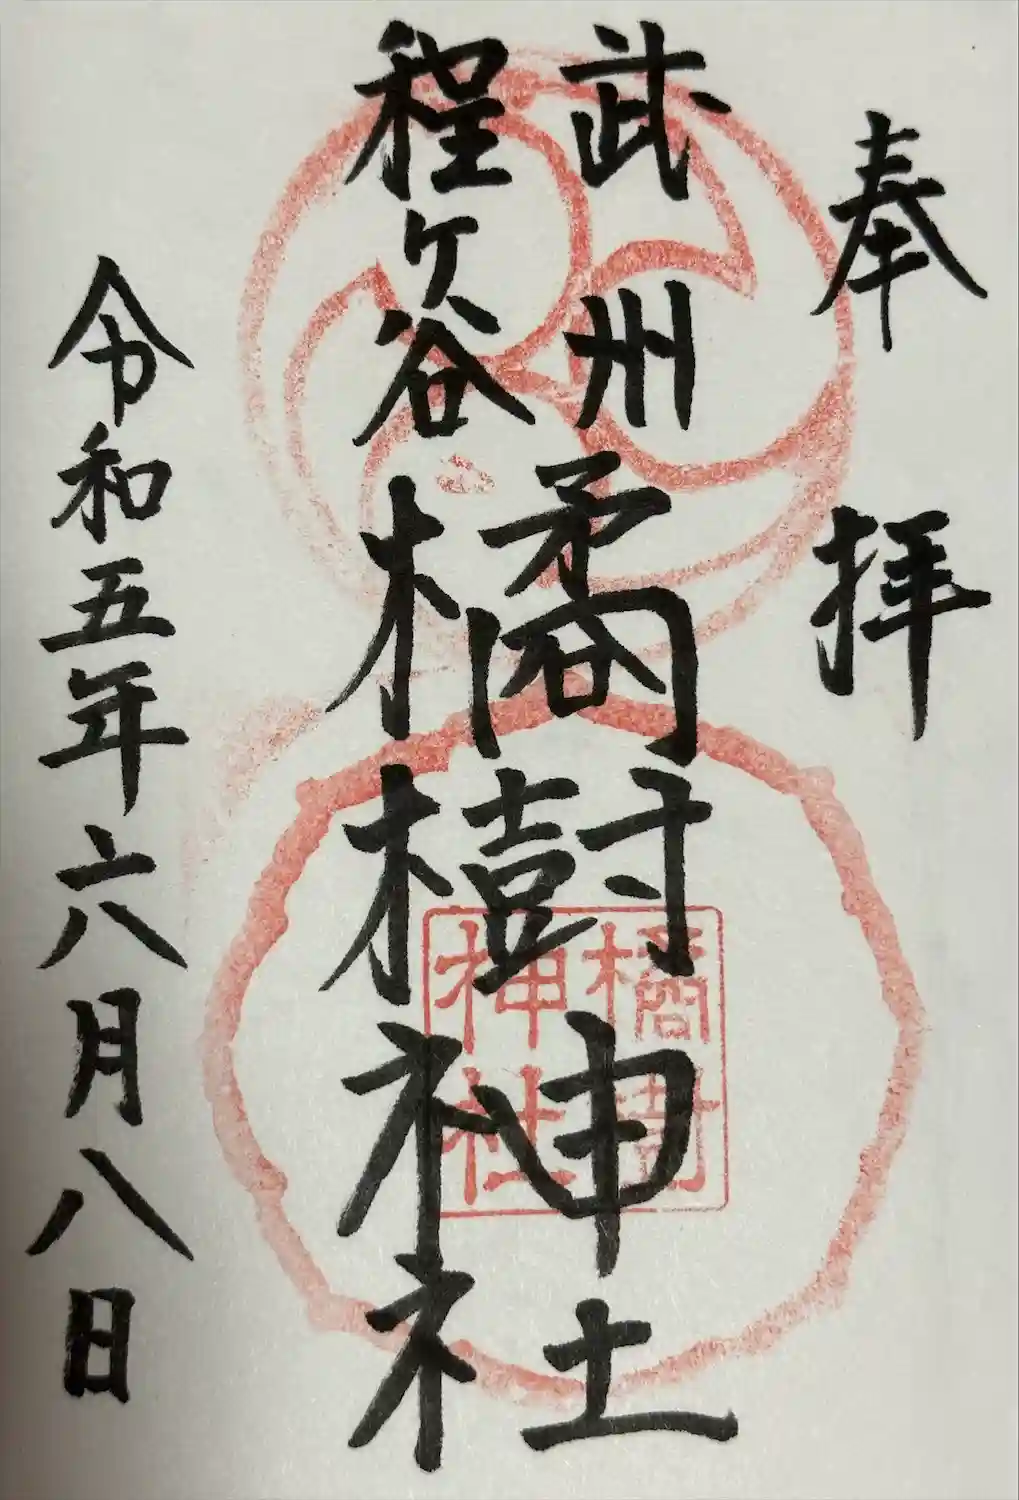 奉拝
武州
程ヶ谷
橘樹神社
橘樹
神社
令和五年六月八日